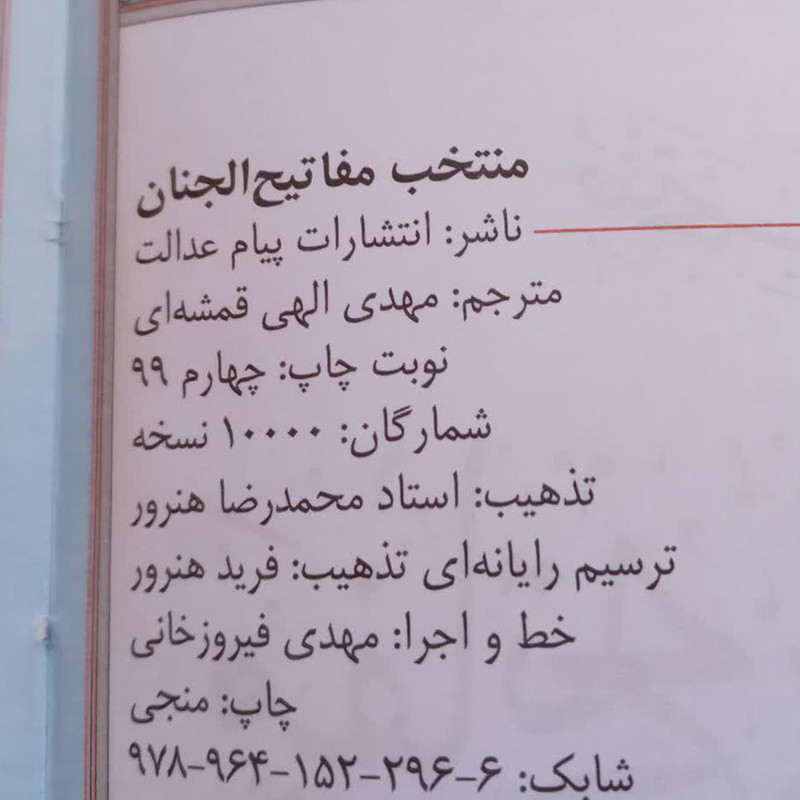 منتخب مفاتیح‌الجنان
ناشر: انتشارات پیام عدالت
مترجم: مهدی الهی قمشه‌ای
نوبت چاپ: چهارم ۹۹
شمارگان: ۱۰۰۰۰ نسخه
تذهیب: استاد محمدرضا هنرور
ترسیم رایانه‌ای تذهیب: فرید هنرور
خط و اجرا: مهدی فیروزخانی
چاپ: منجی
شابک: ۶-۲۹۶-۱۵۲-۹۶۴-۹۷۸